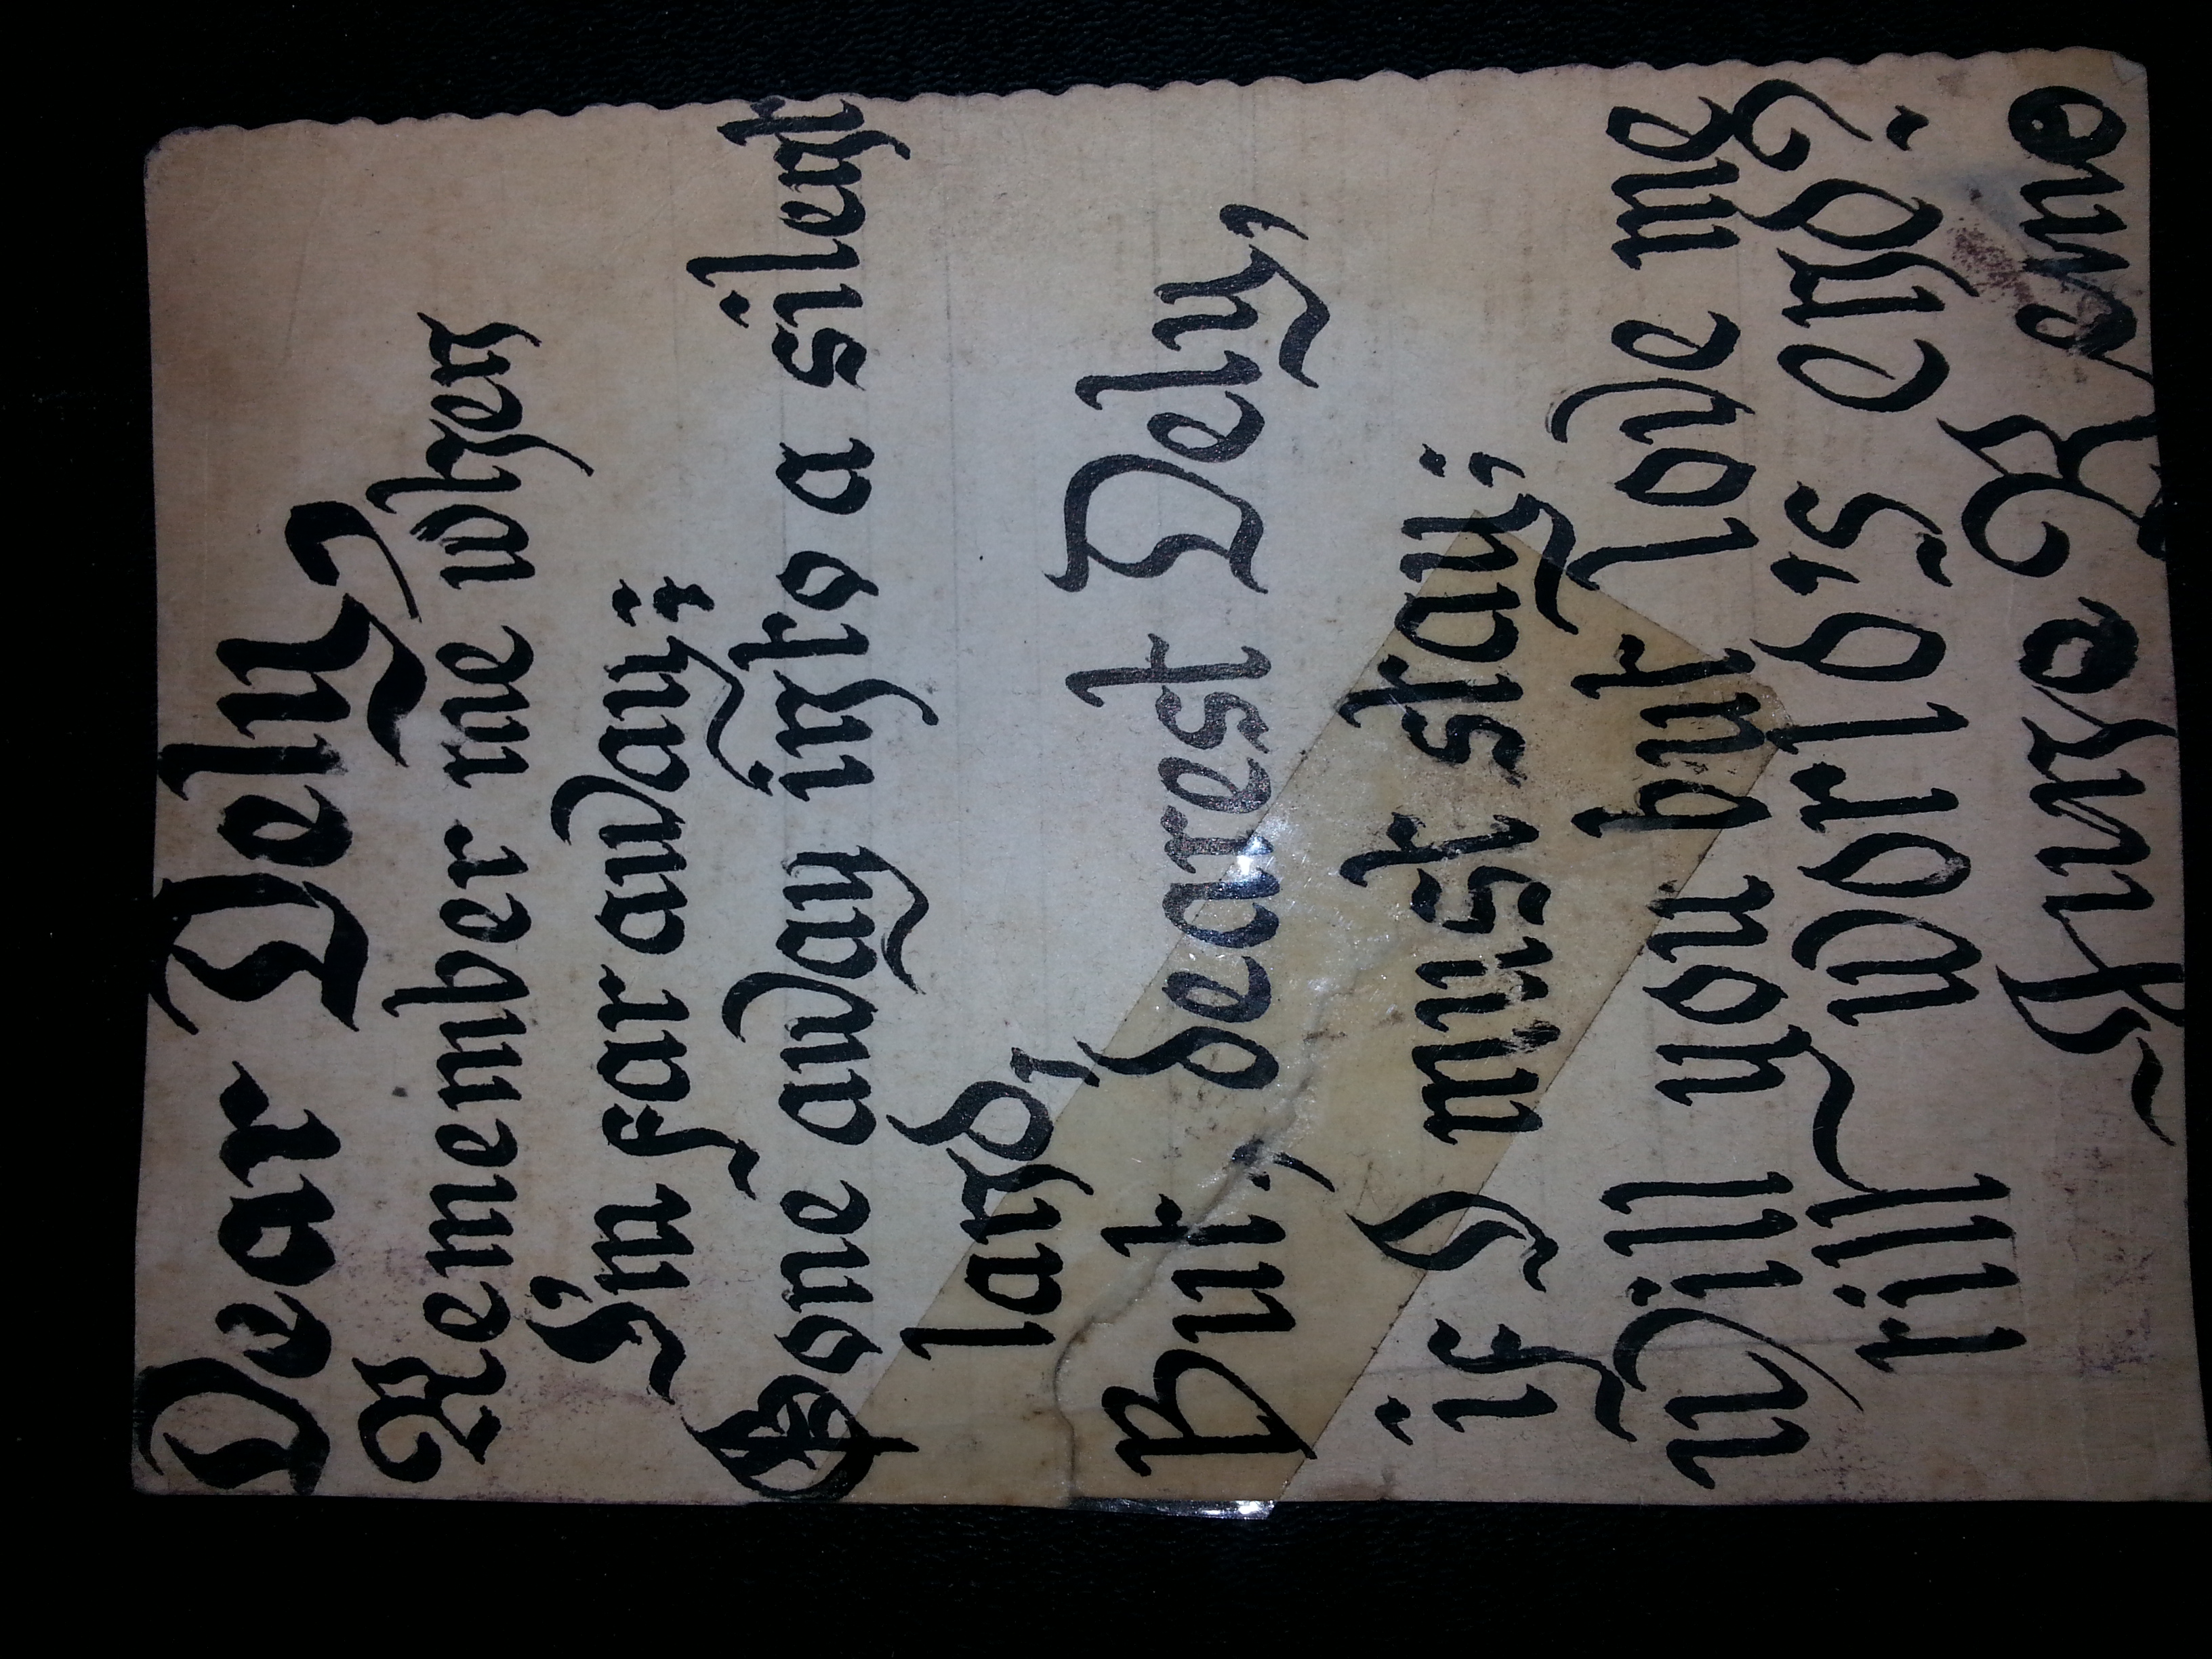 Dear Dely,
Remember me when
I'm far away;
Gone away into a silent
land,
But, dearest Dely,
if I must stay;
Will you but love me
till world's end?
Juno Remo